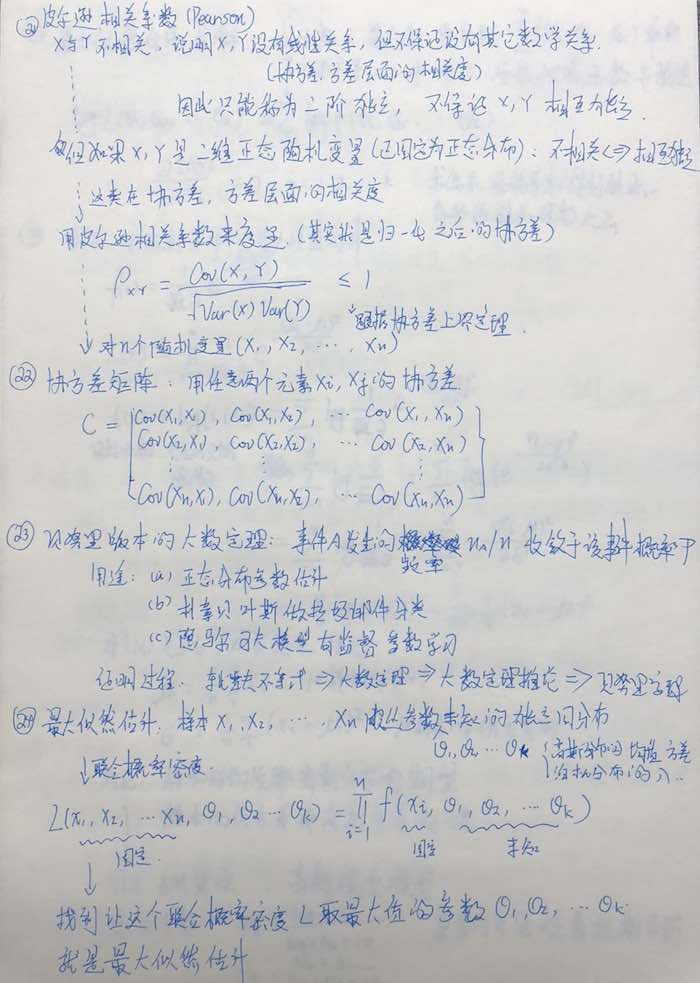 ㉑ 皮尔逊相关系数 (Pearson)
X与Y不相关，说明X,Y没有线性关系，但不保证没有其它数学关系.
(协方差.方差层面的相关度)
因此只能称为二阶独立，不保证X,Y相互独立.
但如果X,Y是二维正态随机变量(已固定为正态分布)：不相关<=>相互独立
这类在协方差，方差层面的相关度
用皮尔逊相关系数来度量.(其实就是归一化之后的协方差)
ρXY = Cov(X,Y) / √Var(X)Var(Y) ≤ 1
根据协方差上界定理.
对n个随机变量(X1, X2, ··· , Xn)
㉒ 协方差矩阵：用任意两个元素Xi, Xj的协方差
C = [Cov(X1,X1), Cov(X1,X2), ··· Cov(X1,Xn)
Cov(X2,X1), Cov(X2,X2), ··· Cov(X2,Xn)
⋮ ⋮ ⋮
Cov(Xn,X1), Cov(Xn,X2), ··· Cov(Xn,Xn)]
㉓ 贝努里版本的大数定理：事件A发生的频率 nA/n 收敛于该事件概率P
用途：(a) 正态分布参数估计
(b) 朴素贝叶斯做垃圾邮件分类
(c) 隐马尔可夫模型有监督参数学习
证明过程. 切比雪夫不等式 => 大数定理 => 大数定理推论 => 贝努里定理
㉔ 最大似然估计. 样本X1, X2, ··· Xn 服从参数未知的独立同分布
θ1, θ2 ··· θk {高斯分布的均值方差
泊松分布的λ..
↓联合概率密度.
L(x1, x2, ··· xn, θ1, θ2 ··· θk) = ∏ i=1 n f(xi, θ1, θ2, ··· θk)
固定 固定 未知
↓
找到让这个联合概率密度L取最大值的参数θ1, θ2, ··· θk
就是最大似然估计